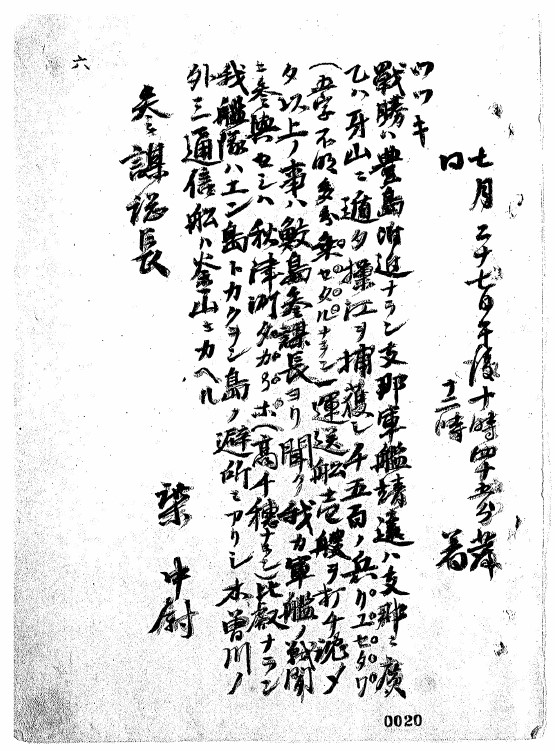 七月二十七日午後十時四十五分発
日 十二時 着
ツツキ
戦勝ハ豊島附近ナラン支那軍艦靖遠ハ支那ニ廣
乙ハ牙山ニ遁タ操江ヲ捕獲シ千五百ノ兵
(五字不明多分乗セタルナラン)運送船壱艘ヲ打チ沈メ
タ以上ノ事ハ鮫島参謀長ヨリ聞ク我カ軍艦ノ戦闘
ニ参與セシハ秋津洲タカ ホ(高千穂ナラン)比叡ナラン
我艦隊ハエン島トカクヲン島ノ避所ニアリシ木曽川ノ
外三通信船ハ釜山ニカヘル
柴中尉
参謀総長
六
0020